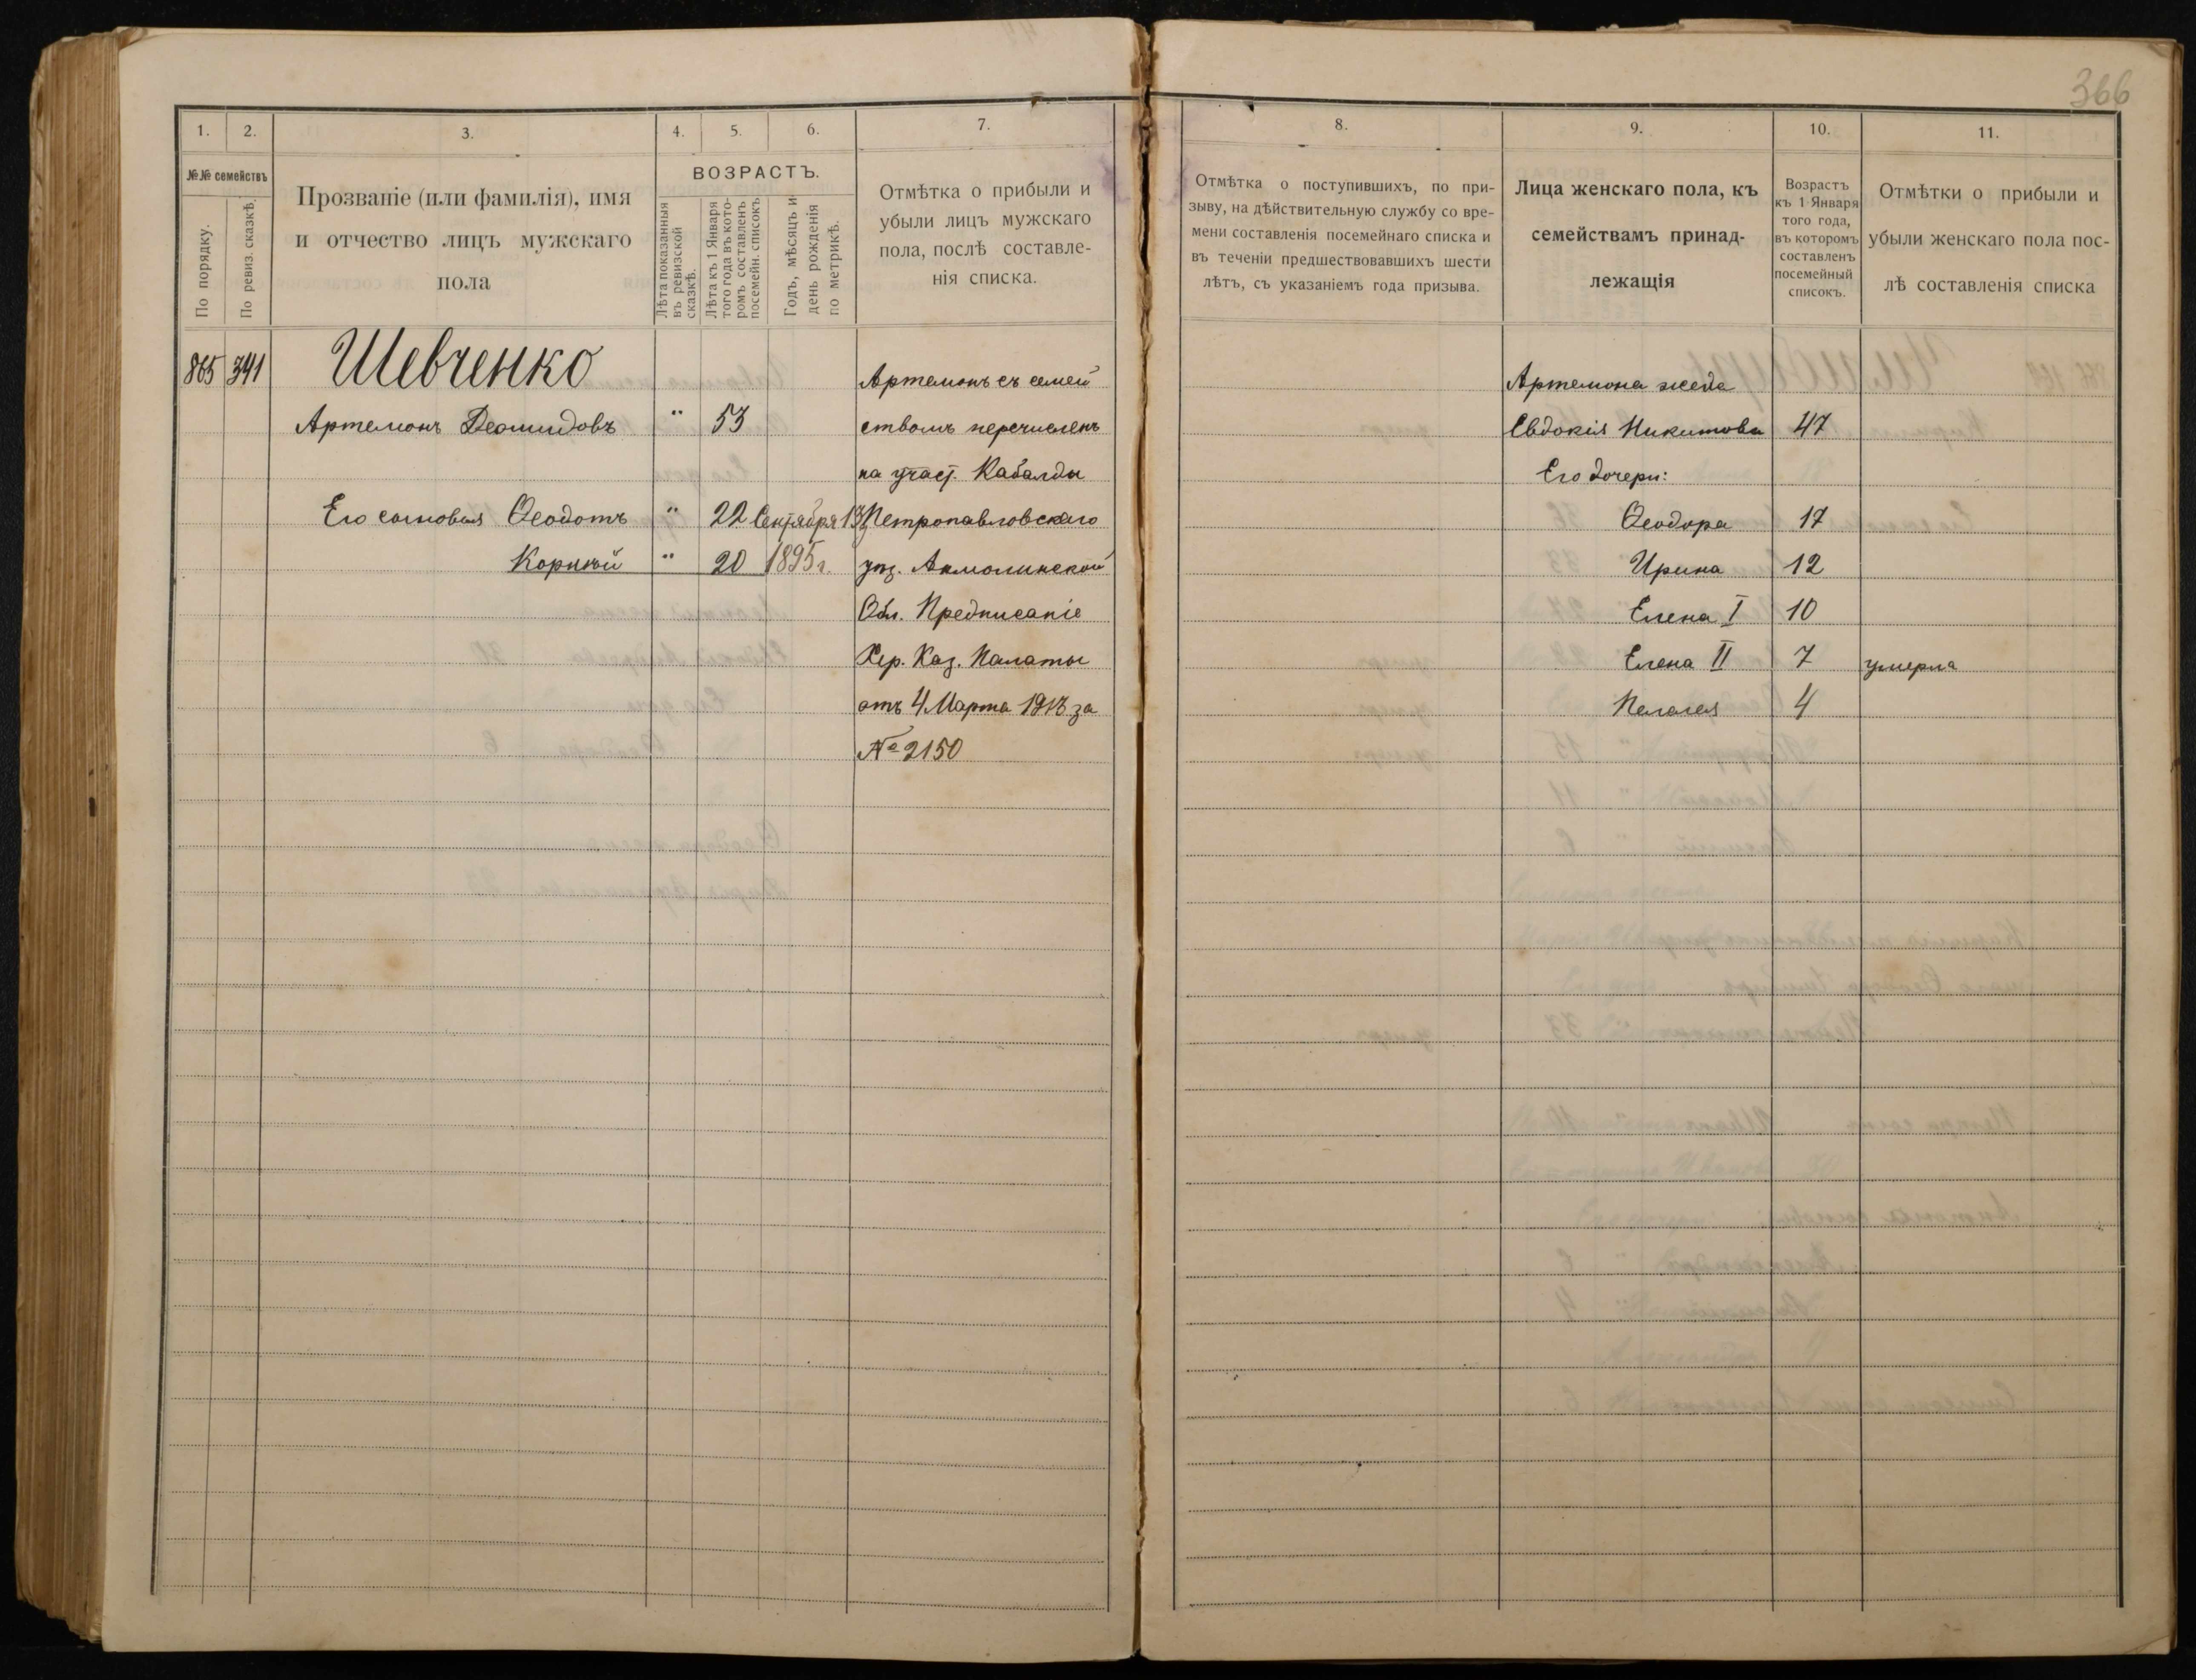 366
1. 2. 3. 4. 5. 6. 7.
№№ семействъ
По порядку.
По ревиз. сказкѣ.
Прозваніе (или фамилія), имя
и отчество лицъ мужскаго
пола
ВОЗРАСТЪ.
Лѣта показанныя
въ ревизской
сказкѣ.
Лѣта къ 1 Января
того года въ кото-
ромъ составленъ
посемейн. списокъ
Годъ, мѣсяцъ и
день рожденія
по метрикѣ.
Отмѣтка о прибыли и
убыли лицъ мужскаго
пола, послѣ составле-
нія списка.
865 341 Шевченко Артемонъ съ семей
Артемонъ Деомидовъ " 53 ствомъ перечисленъ
на участ. Кабалды
Его сыновья Ѳеодотъ " 22 Сентября 13 Петропавловскаго
Корнѣй " 20 1895 г. уѣз. Акмолинской
Обл. Предписаніе
Хер. Каз. Палаты
отъ 4 Марта 1913 за
№ 2150
8. 9. 10. 11.
Отмѣтка о поступившихъ, по при-
зыву, на дѣйствительную службу со вре-
мени составленія посемейнаго списка и
въ теченіи предшествовавшихъ шести
лѣтъ, съ указаніемъ года призыва.
Лица женскаго пола, къ
семействамъ принад-
лежащія
Возрастъ
къ 1 Января
того года,
въ которомъ
составленъ
посемейный
списокъ.
Отмѣтки о прибыли и
убыли женскаго пола пос-
лѣ составленія списка
Артемона жена
Евдокія Никитова 47
Его дочери:
Ѳеодора 17
Ирина 12
Елена I 10
Елена II 7 умерла
Пелагея 4